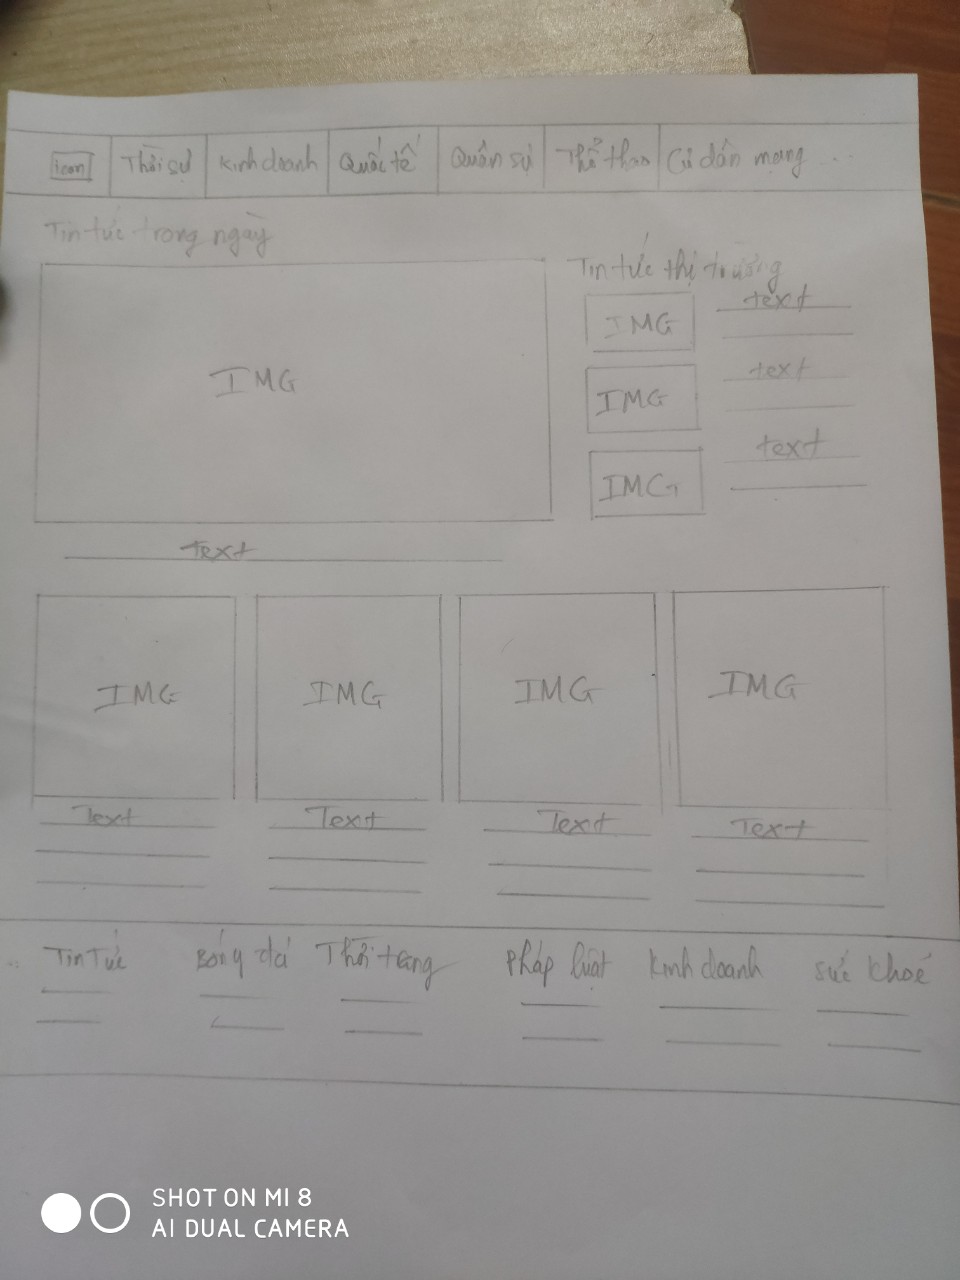 icon Thời sự Kinh doanh Quốc tế Quân sự Thể thao Cư dân mạng ...
Tin tức trong ngày
Tin tức thị trường
IMG
IMG text
IMG text
IMG text
Text
IMG IMG IMG IMG
Text Text Text Text
Tin Tức Bóng đá Thời trang Pháp luật Kinh doanh Sức khoẻ
SHOT ON MI 8
AI DUAL CAMERA